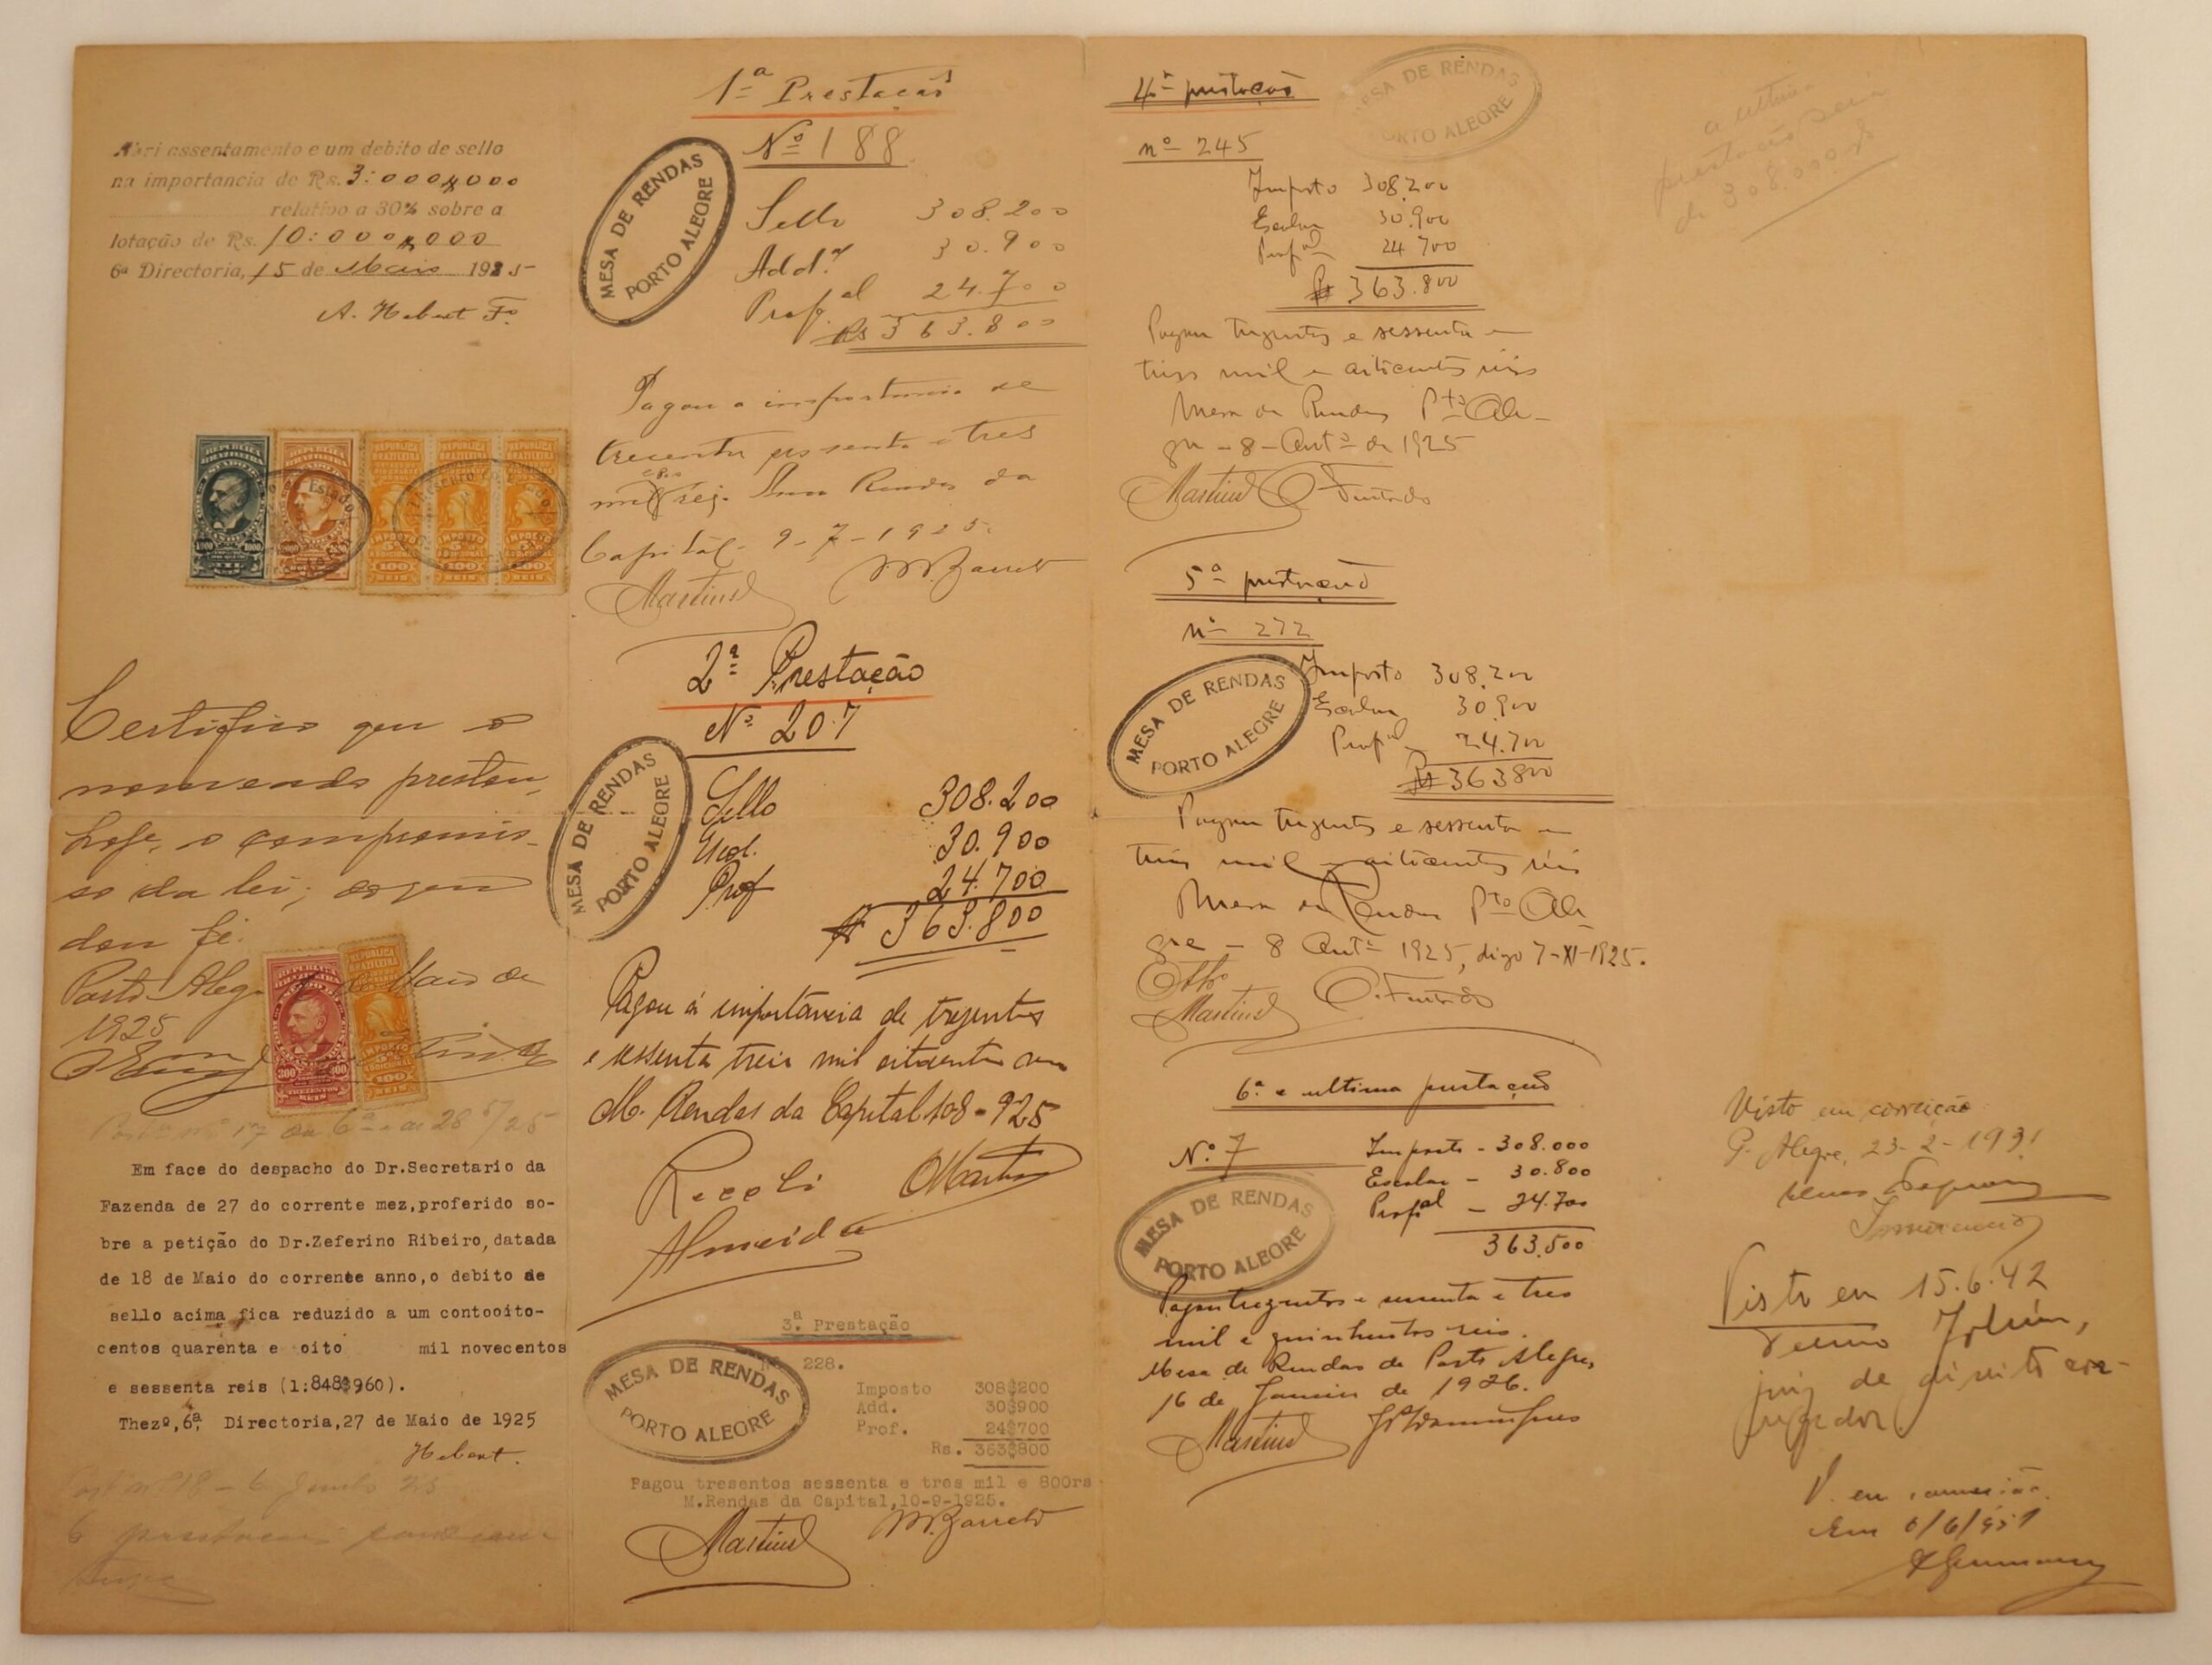 Abri assentamento e um debito de sello
na importancia de Rs. 3:000$000
relativo a 30% sobre a
lotação de Rs. 10:000$000
6ª Directoria, 15 de Maio 1925
A. Hebert Fº
REPUBLICA
BRAZILEIRA
1000 1000
REPUBLICA
BRAZILEIRA
REPUBLICA
BRAZILEIRA
IMPOSTO
5%
ADDICIONAL
100
REIS
REPUBLICA
BRAZILEIRA
IMPOSTO
5%
ADDICIONAL
100
REIS
REPUBLICA
BRAZILEIRA
IMPOSTO
5%
ADDICIONAL
100
REIS
Certifico que o
nomeado prestou,
hoje, o compromis-
so da lei; do que
dou fé.
Porto Aleg de Maio de
1925
REPUBLICA
BRAZILEIRA
300 300
TREZENTOS
REIS
REPUBLICA
BRAZILEIRA
IMPOSTO
5%
ADDICIONAL
100
REIS
nº 17 da 6ª de 28/5/25
Em face do despacho do Dr.Secretario da
Fazenda de 27 do corrente mez,proferido so-
bre a petição do Dr.Zeferino Ribeiro,datada
de 18 de Maio do corrente anno,o debito de
sello acima fica reduzido a um contooito-
centos quarenta e oito mil novecentos
e sessenta reis (1:848$960).
Thezº,6ª, Directoria,27 de Maio de 1925
Hebert.
nº 18 - 6 Junho 25
6
1ª Prestação
Nº 188
MESA DE RENDAS
PORTO ALEGRE
Sello 308.200
Add.al 30.900
Prof.al 24.700
Rs 363.800
Pagou a importancia de
trecentos sessenta e tres
mil 800 reis. Mesa Rendas da
Capital - 9-7-1925.
Martins M.Barreto
2ª Prestação
Nº 207
MESA DE RENDAS
PORTO ALEGRE
Sello 308.200
Escol. 30.900
Prof 24.700
Rs 363.800
Pagou á importancia de trezentos
e sessenta treis mil oitocentos
M. Rendas da Capital 108-925
Martins
Almeida
3ª Prestação
Nº 228.
MESA DE RENDAS
PORTO ALEGRE
Imposto 308$200
Add. 30$900
Prof. 24$700
Rs. 363$800
Pagou tresentos sessenta e tres mil e 800rs
M.Rendas da Capital,10-9-1925.
Martins M.Barreto
4ª prestação
MESA DE RENDAS
PORTO ALEGRE
nº 245
Imposto 308.200
Escolar 30.900
Profal 24.700
Rs 363.800
Pagou trezentos e sessenta e
tres mil e oitocentos réis
Mesa de Rendas Pto Ale-
gre - 8 - Outº de 1925
Martins O. Furtado
5ª prestação
nº 272
MESA DE RENDAS
PORTO ALEGRE
Imposto 308.200
Escolar 30.900
Profal 24.700
Rs 363800
Pagou trezentos e sessenta e
tres mil e oitocentos réis
Mesa de Rendas Pto Ale
gre - 8 Outº 1925, digo 7-XI-1925.
Martins O. Furtado
6ª e ultima prestação
Nº 7
MESA DE RENDAS
PORTO ALEGRE
Imposto - 308.000
Escolar - 30.800
Profal - 24.700
363.500
Pagou trezentos e sessenta e tres
mil e quinhentos reis.
Mesa de Rendas de Porto Alegre,
16 de Janeiro de 1926.
Martins
a ultima
prestação será
de 308.000
Visto em correição
P. Alegre, 23-2-1931
Visto em 15.6.42
Telmo Jobim,
juiz de direito cor-
regedor
V. em correição.
Em 6/6/951